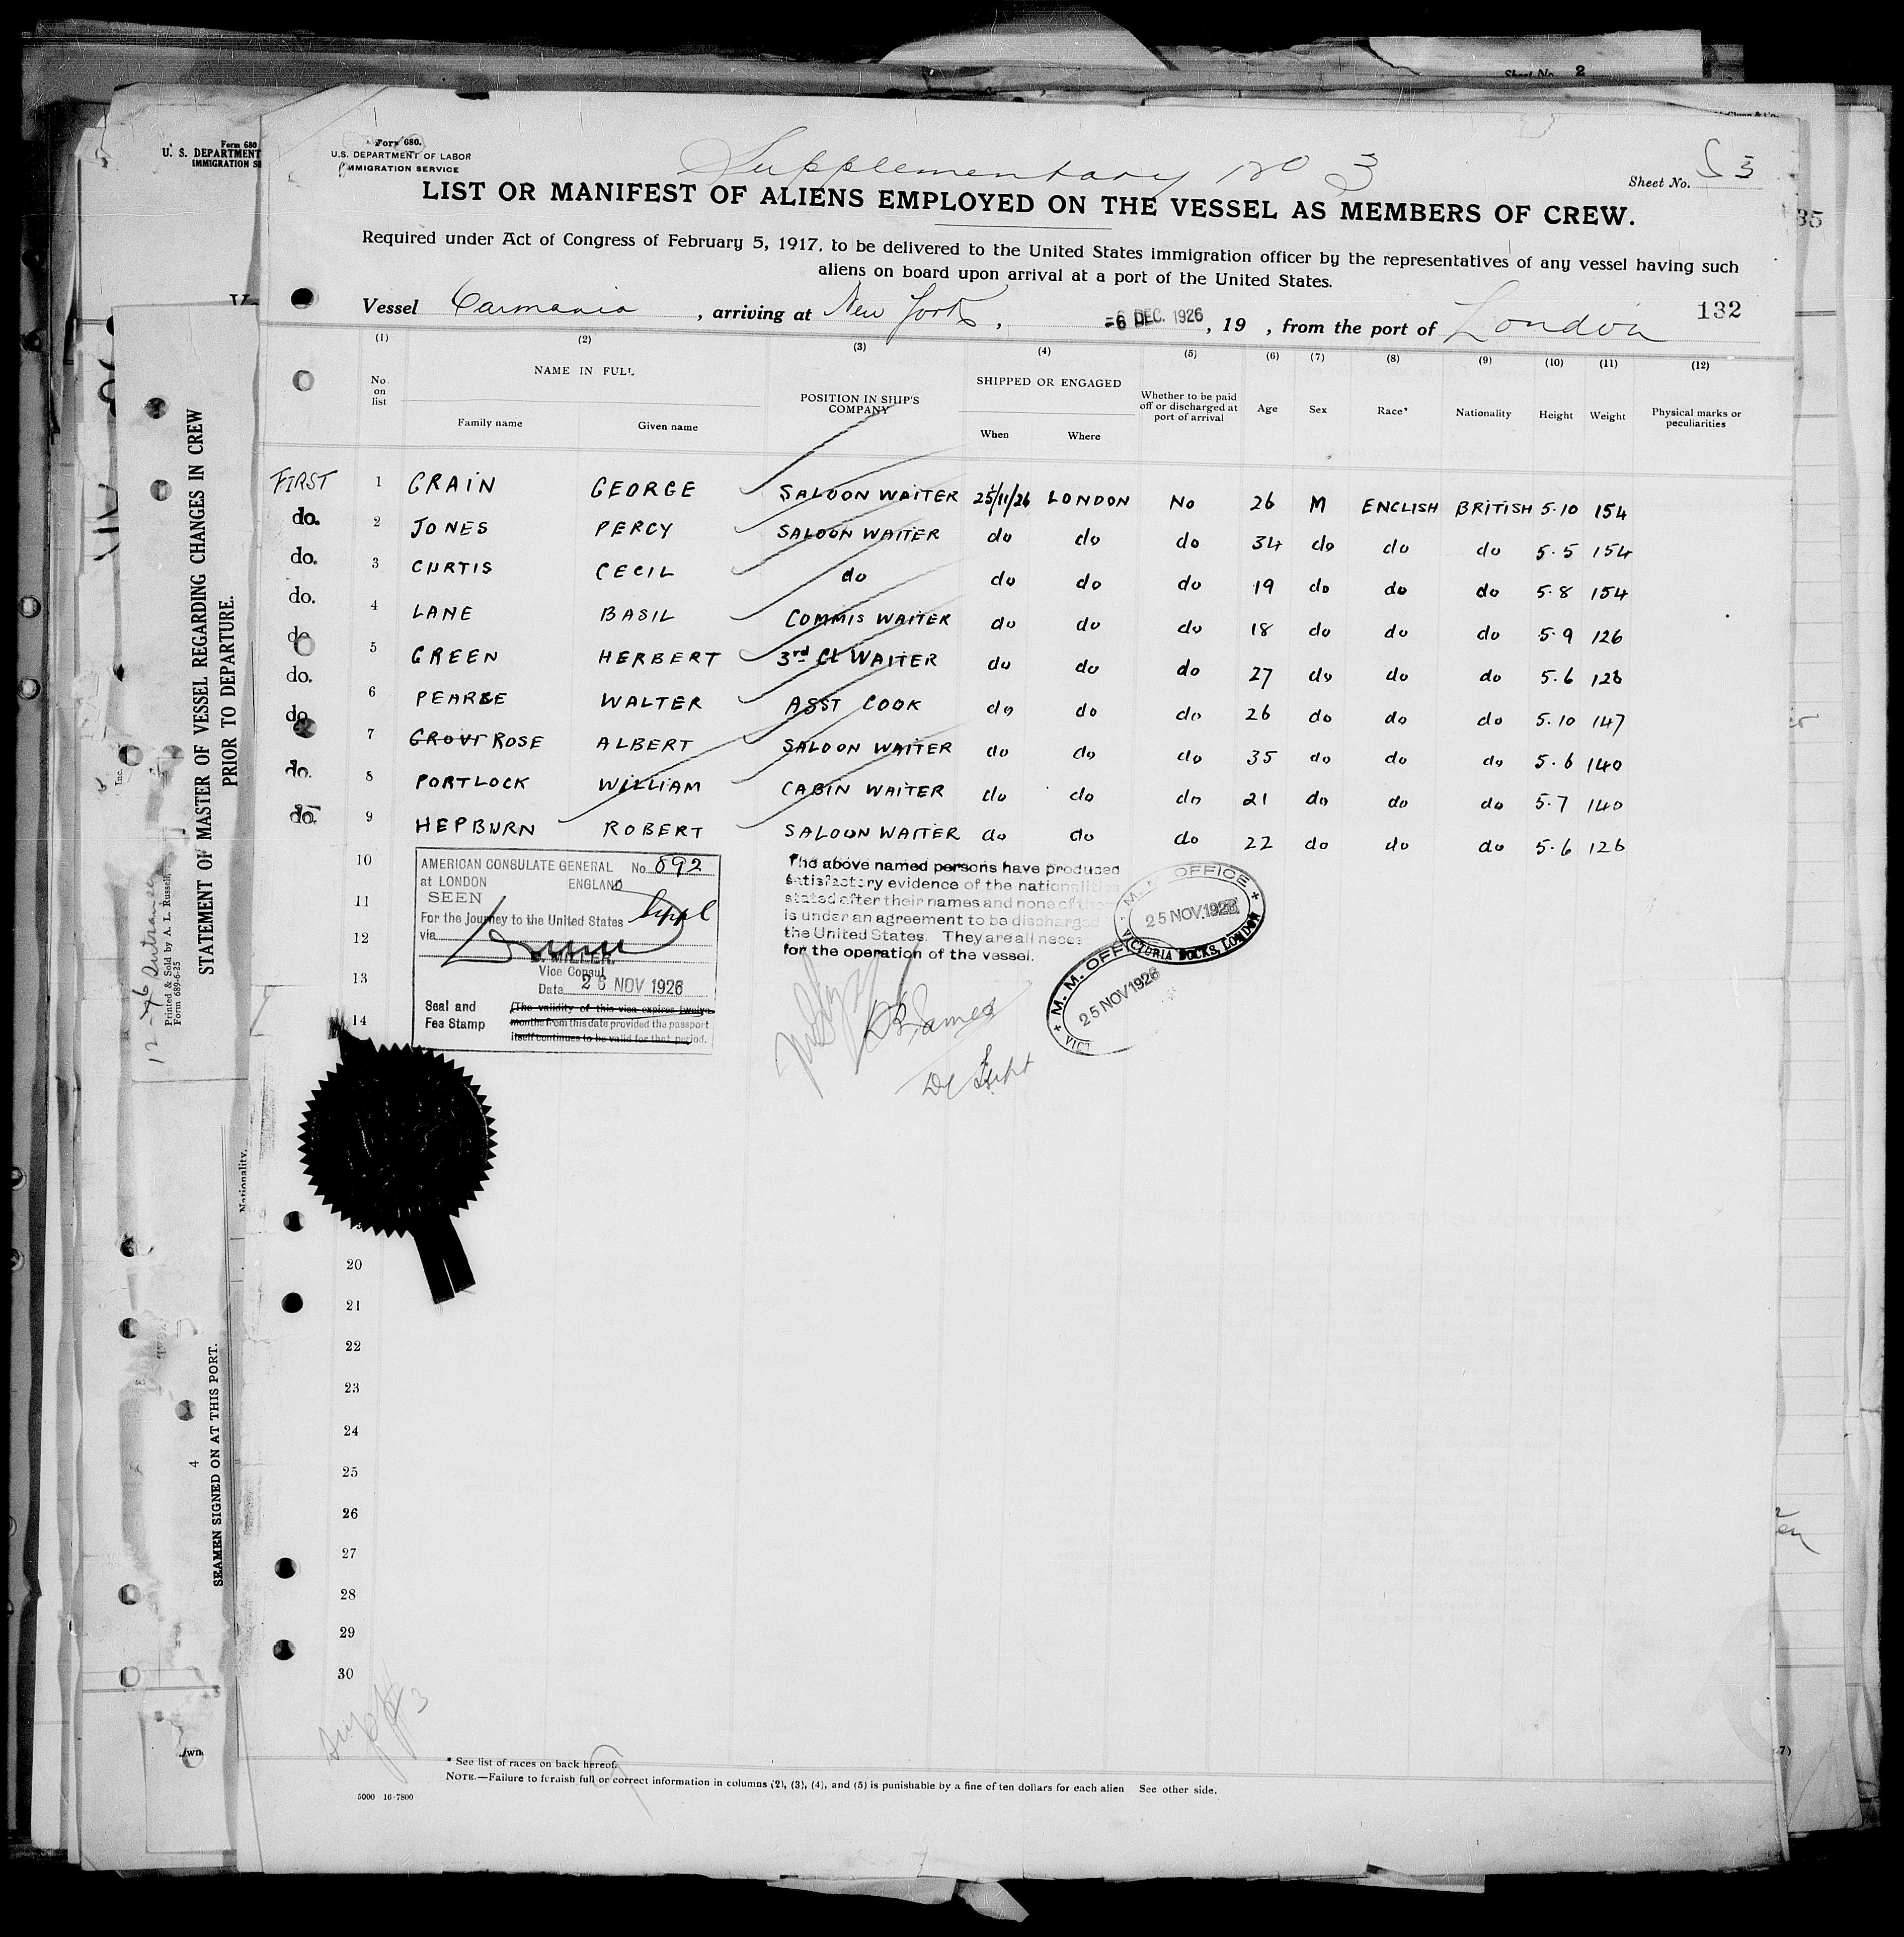 Sheet No. 2
Form 680
U. S. DEPARTMENT
IMMIGRATION SE
Form 680.
U.S. DEPARTMENT OF LABOR
IMMIGRATION SERVICE
Supplementary No 3
Sheet No. S 3
LIST OR MANIFEST OF ALIENS EMPLOYED ON THE VESSEL AS MEMBERS OF CREW.
35
Required under Act of Congress of February 5, 1917, to be delivered to the United States immigration officer by the representatives of any vessel having such
aliens on board upon arrival at a port of the United States.
132
Vessel Carmania, arriving at New York, -6 DEC. 1926, 19 , from the port of London
(1) (2) (3) (4) (5) (6) (7) (8) (9) (10) (11) (12)
No on list NAME IN FULL POSITION IN SHIP'S COMPANY SHIPPED OR ENGAGED Whether to be paid off or discharged at port of arrival Age Sex Race* Nationality Height Weight Physical marks or peculiarities
Family name Given name When Where
FIRST 1 GRAIN GEORGE SALOON WAITER 25/11/26 LONDON No 26 M ENGLISH BRITISH 5.10 154
do. 2 JONES PERCY SALOON WAITER do do do 34 do do do 5.5 154
do. 3 CURTIS CECIL do do do do 19 do do do 5.8 154
do. 4 LANE BASIL COMMIS WAITER do do do 18 do do do 5.9 126
do 5 GREEN HERBERT 3rd Cl WAITER do do do 27 do do do 5.6 128
do. 6 PEARSE WALTER ASST COOK do do do 26 do do do 5.10 147
do. 7 GROVT ROSE ALBERT SALOON WAITER do do do 35 do do do 5.6 140
do. 8 PORTLOCK WILLIAM CABIN WAITER do do do 21 do do do 5.7 140
do. 9 HEPBURN ROBERT SALOON WAITER do do do 22 do do do 5.6 126
10
11
12
13
14
AMERICAN CONSULATE GENERAL No. 892
at LONDON ENGLAND
SEEN
For the journey to the United States
via
MILLER.
Vice Consul
Date 26 NOV 1926
Seal and Fee Stamp
(The validity of this visa expires twelve
months from this date provided the passport
itself continues to be valid for that period.
The above named persons have produced
satisfactory evidence of the nationalities
stated after their names and none of them
is under an agreement to be discharged
the United States. They are all neces
for the operation of the vessel.
James
Dy Supt
M. M. OFFICE
25 NOV.1926
VICTORIA DOCKS, LONDON
M. M. OFF
25 NOV 1926
VICT
20
21
22
23
24
25
26
27
28
29
30
Supp 3
* See list of races on back hereof.
NOTE.—Failure to furnish full or correct information in columns (2), (3), (4), and (5) is punishable by a fine of ten dollars for each alien See other side.
5000 16-7800
STATEMENT OF MASTER OF VESSEL REGARDING CHANGES IN CREW
PRIOR TO DEPARTURE.
Printed & Sold by A. L. Russell, Inc.
Form 689-6-25
Nationality.
4
SEAMEN SIGNED ON AT THIS PORT.